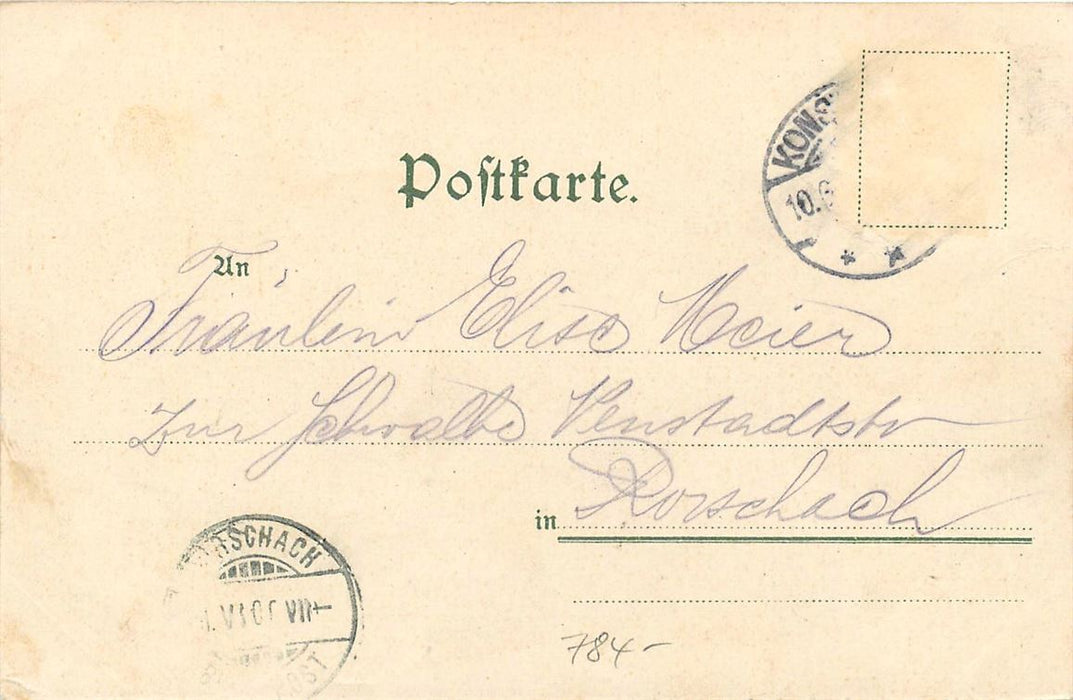 Postkarte.
KONS
10.6
An
Fräulein Elise Meier
zur Schwalbe Neustadtstr
in Rorschach
RORSCHACH
VI.01 VII
784-